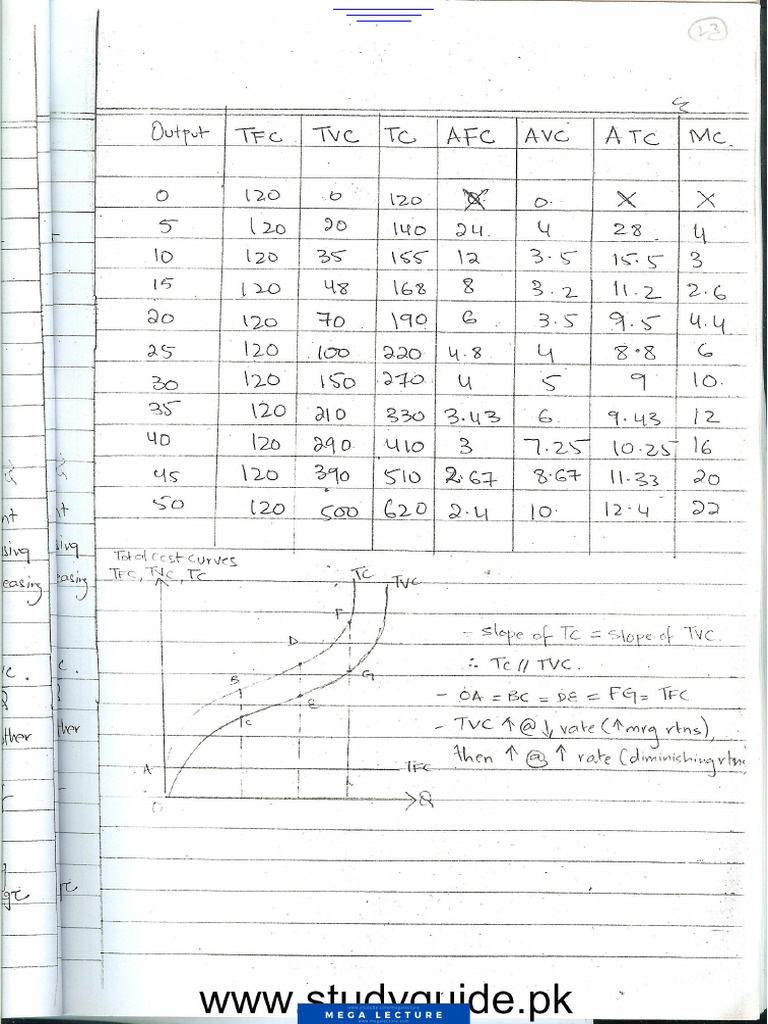 23
Output TFC TVC TC AFC AVC ATC MC.
0 120 0 120 X 0. X X
5 120 20 140 24. 4 28. 4
10 120 35 155 12 3.5 15.5 3
15 120 48 168 8 3.2 11.2 2.6
20 120 70 190 6 3.5 9.5 4.4
25 120 100 220 4.8 4 8.8 6
30 120 150 270 4 5 9 10.
35 120 210 330 3.43 6 9.43 12
40 120 290 410 3 7.25 10.25 16
45 120 390 510 2.67 8.67 11.33 20
50 120 500 620 2.4 10. 12.4 22
Total cost curves
TFC, TVC, TC
TC TVC
F
D
B
G
E
C
A
TFC
O
Q
- slope of TC = slope of TVC.
∴ TC // TVC.
- OA = BC = DE = FG = TFC
- TVC ↑ @ ↓ rate (↑ mrg rtns),
then ↑ @ ↑ rate (diminishing rtns
nt nt
sing sing
easing easing
ther ther
www.studyguide.pk
MEGA LECTURE
www.megalecture.com